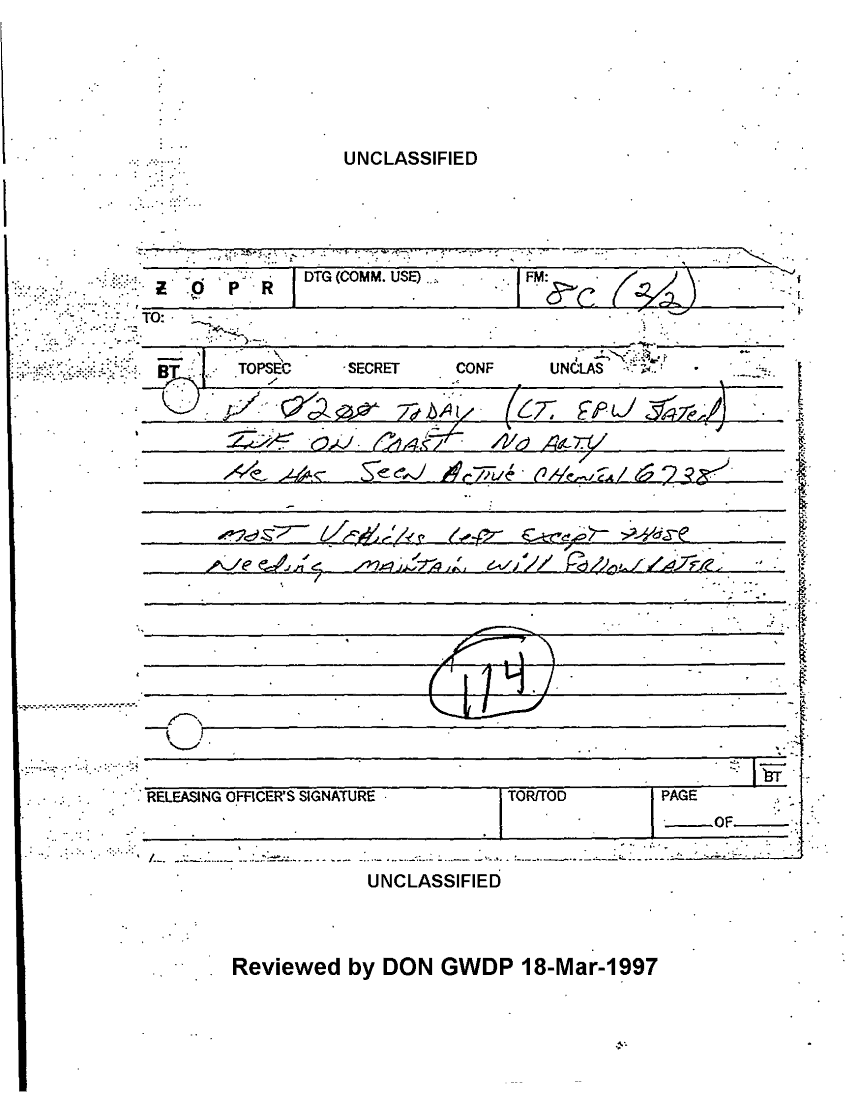 UNCLASSIFIED
Z O P R DTG (COMM. USE) FM: 8C (2/2)
TO:
BT TOPSEC SECRET CONF UNCLAS
0200 TODAY (LT. EPW STATED)
INF ON COAST NO ARTY
He HAS SEEN ACTIVE CHemical 6738
MOST VEHicles left Except THose
Needing MAINTAIN will Follow LATER.
174
BT
RELEASING OFFICER'S SIGNATURE TOR/TOD PAGE
____OF____
UNCLASSIFIED
Reviewed by DON GWDP 18-Mar-1997